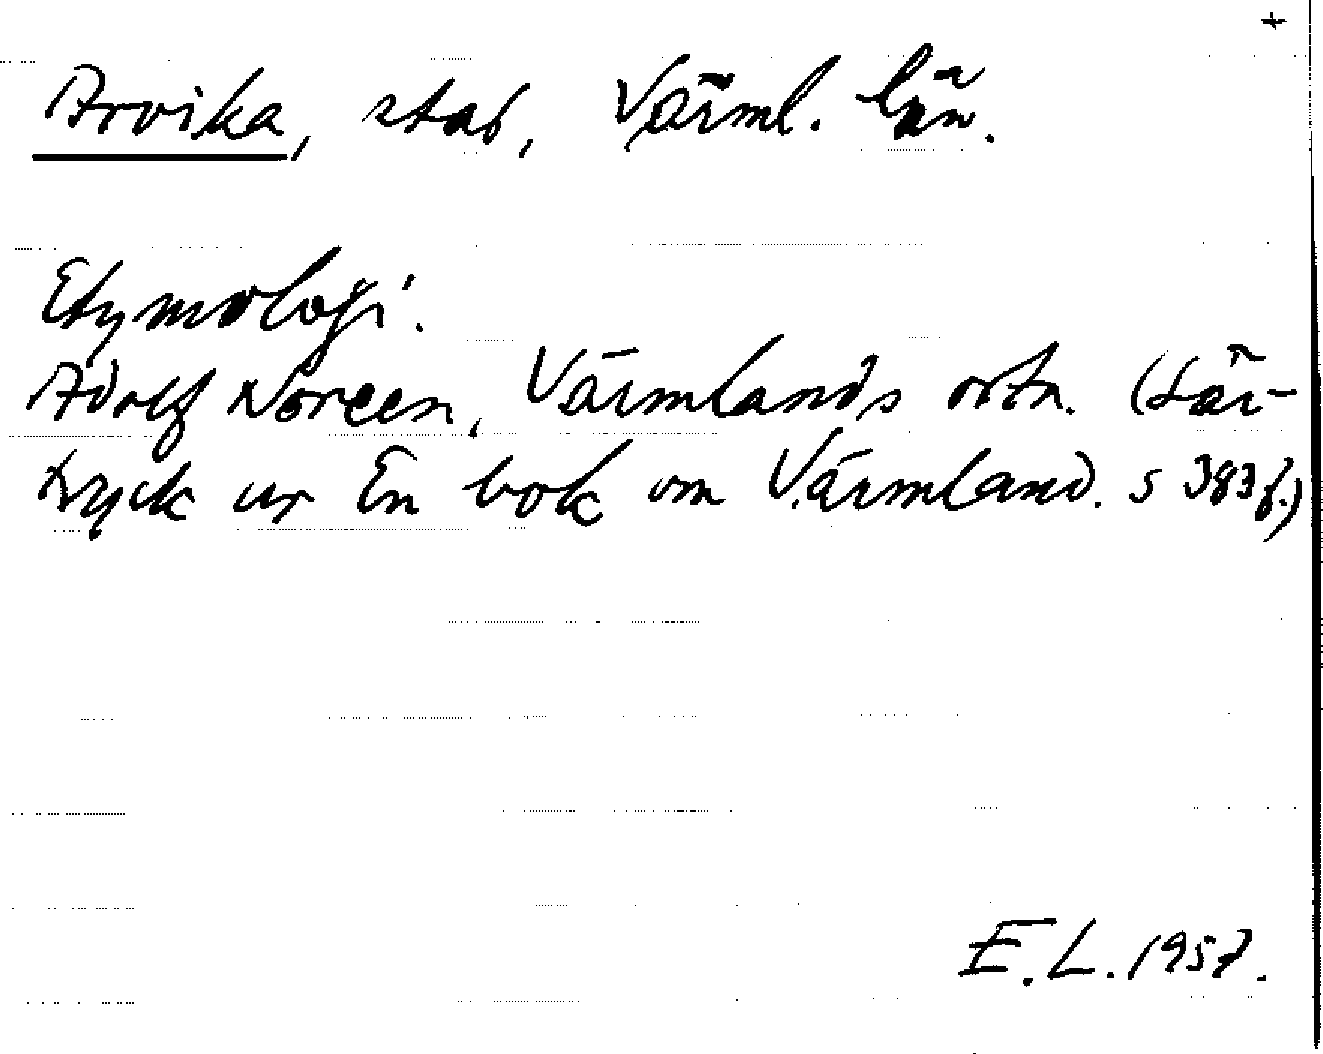 +
Arvika, stad, Värml. län.
Etymologi.
Adolf Noreen, Värmlands ortn. (Sär-
tryck ur En bok om Värmland. s 383f.)
E.L. 1957.